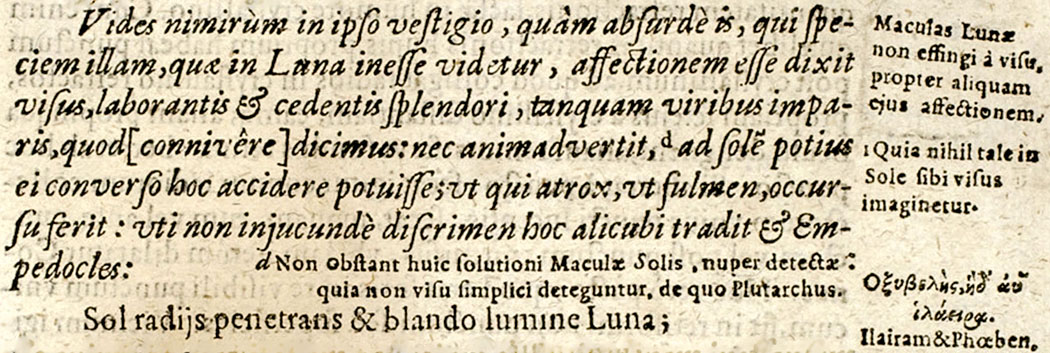 Vides nimirùm in ipso vestigio, quàm absurdè is, qui spe-
ciem illam, quæ in Luna inesse videtur, affectionem esse dixit
visus, laborantis & cedentis splendori, tanquam viribus impa-
ris, quod [connivêre] dicimus: nec animadvertit, d ad solẽ potius
ei converso hoc accidere potuisse; vt qui atrox, vt fulmen, occur-
su ferit: vti non injucundè discrimen hoc alicubi tradit & Em-
pedocles:
d Non obstant huic solutioni Maculæ Solis, nuper detectæ:
quia non visu simplici deteguntur, de quo Plutarchus.
Sol radijs penetrans & blando lumine Luna;
Maculas Lunæ
non effingi à visu,
propter aliquam
ejus affectionem.
1 Quia nihil tale in
Sole sibi visus
imaginetur.
Οξυβελὴς, ἠδ' αὖ
ἱλάειρα.
Ilairam & Phœben.